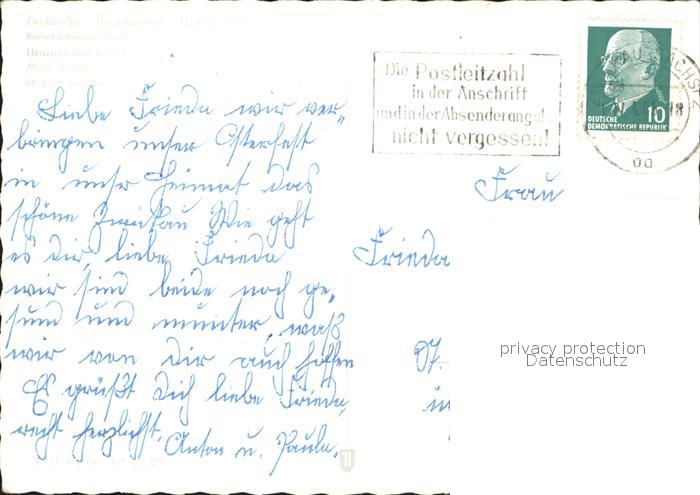 Zwickau Sa. Hauptbahnhof
Robert-Schumann-Stadt
Die Postleitzahl
in der Anschrift
und in der Absenderangabe
nicht vergessen!
10
DEUTSCHE
DEMOKRATISCHE REPUBLIK
Liebe Frieda wir ver-
bringen unser Osterfest
in unsr Heimat das
schöne Zwickau Wie geht
es dir, liebe Frieda
wir sind beide noch ge-
sund und munter, was
wir von dir auch hoffen
Es grüßt Dich liebe Frieda,
recht herzlichst.
Anton u. Paula.
Frau
Frieda
privacy protection
Datenschutz